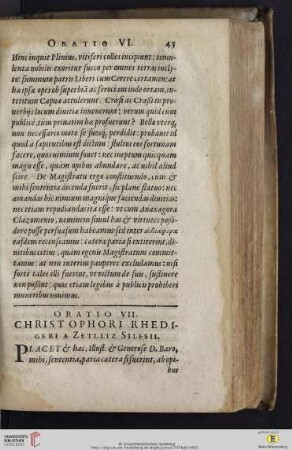 ORATIO VI. 45
Hinc inquit Plinius, vitiferi colles incipiunt: temu-
lenta nobilis exoritur succo per omnes terras incly-
to: summum patris Liberi cum Cerere certamen: at
hæ ipsæ opes ob superbiā ac ferociam inde ortam, in-
teritum Capuæ attulerunt. Crœsi ac Crassi in pro-
verbijs locum divitiæ invenerunt: verum quid cum
publicè, tum privatim hæ profuerunt? Bella uterq,
non necessaria moto se suosq, perdidit: probavit id
quod à sapientibus est dictum: stultos eos fortunam
facere, quos nimium fovet: nec ineptum quicquam
magis esse, quàm opibus abundare, at nihil aliud
scire. De Magistratu ergo constituendo, cum &
mihi sententia dicenda fuerit, sic planè statuo: nec
amandas hic nimium magnasque faciendas divitias:
nec etiam repudiandas esse: vt cum Anaxagora
Clazomenio, neminem simul has & virtutes possi-
dere posse persuasum habeamus: sed inter
easdem recenseamus: cætera paria si extiterint, di-
vitibus citius, quam egenis Magistratum commit-
tamus: at non interim pauperes excludamus: nisi
fortè tales illi fuerint, vt victum de suis, sustinere
non possint: quos etiam legibus à publicis prohiberi
muneribus novimus.
ORATIO VII.
CHRISTOPHORI RHEDI-
GERI A ZETLITZ SILESII.
PLACET & hæc, Illust. & Generose D. Baro,
mihi, sententia, paria cætera si fuerint, ab opi-
bus
UNIVERSITÄTS-
BIBLIOTHEK
HEIDELBERG
© Universitätsbibliothek Heidelberg
Baden-Württemberg